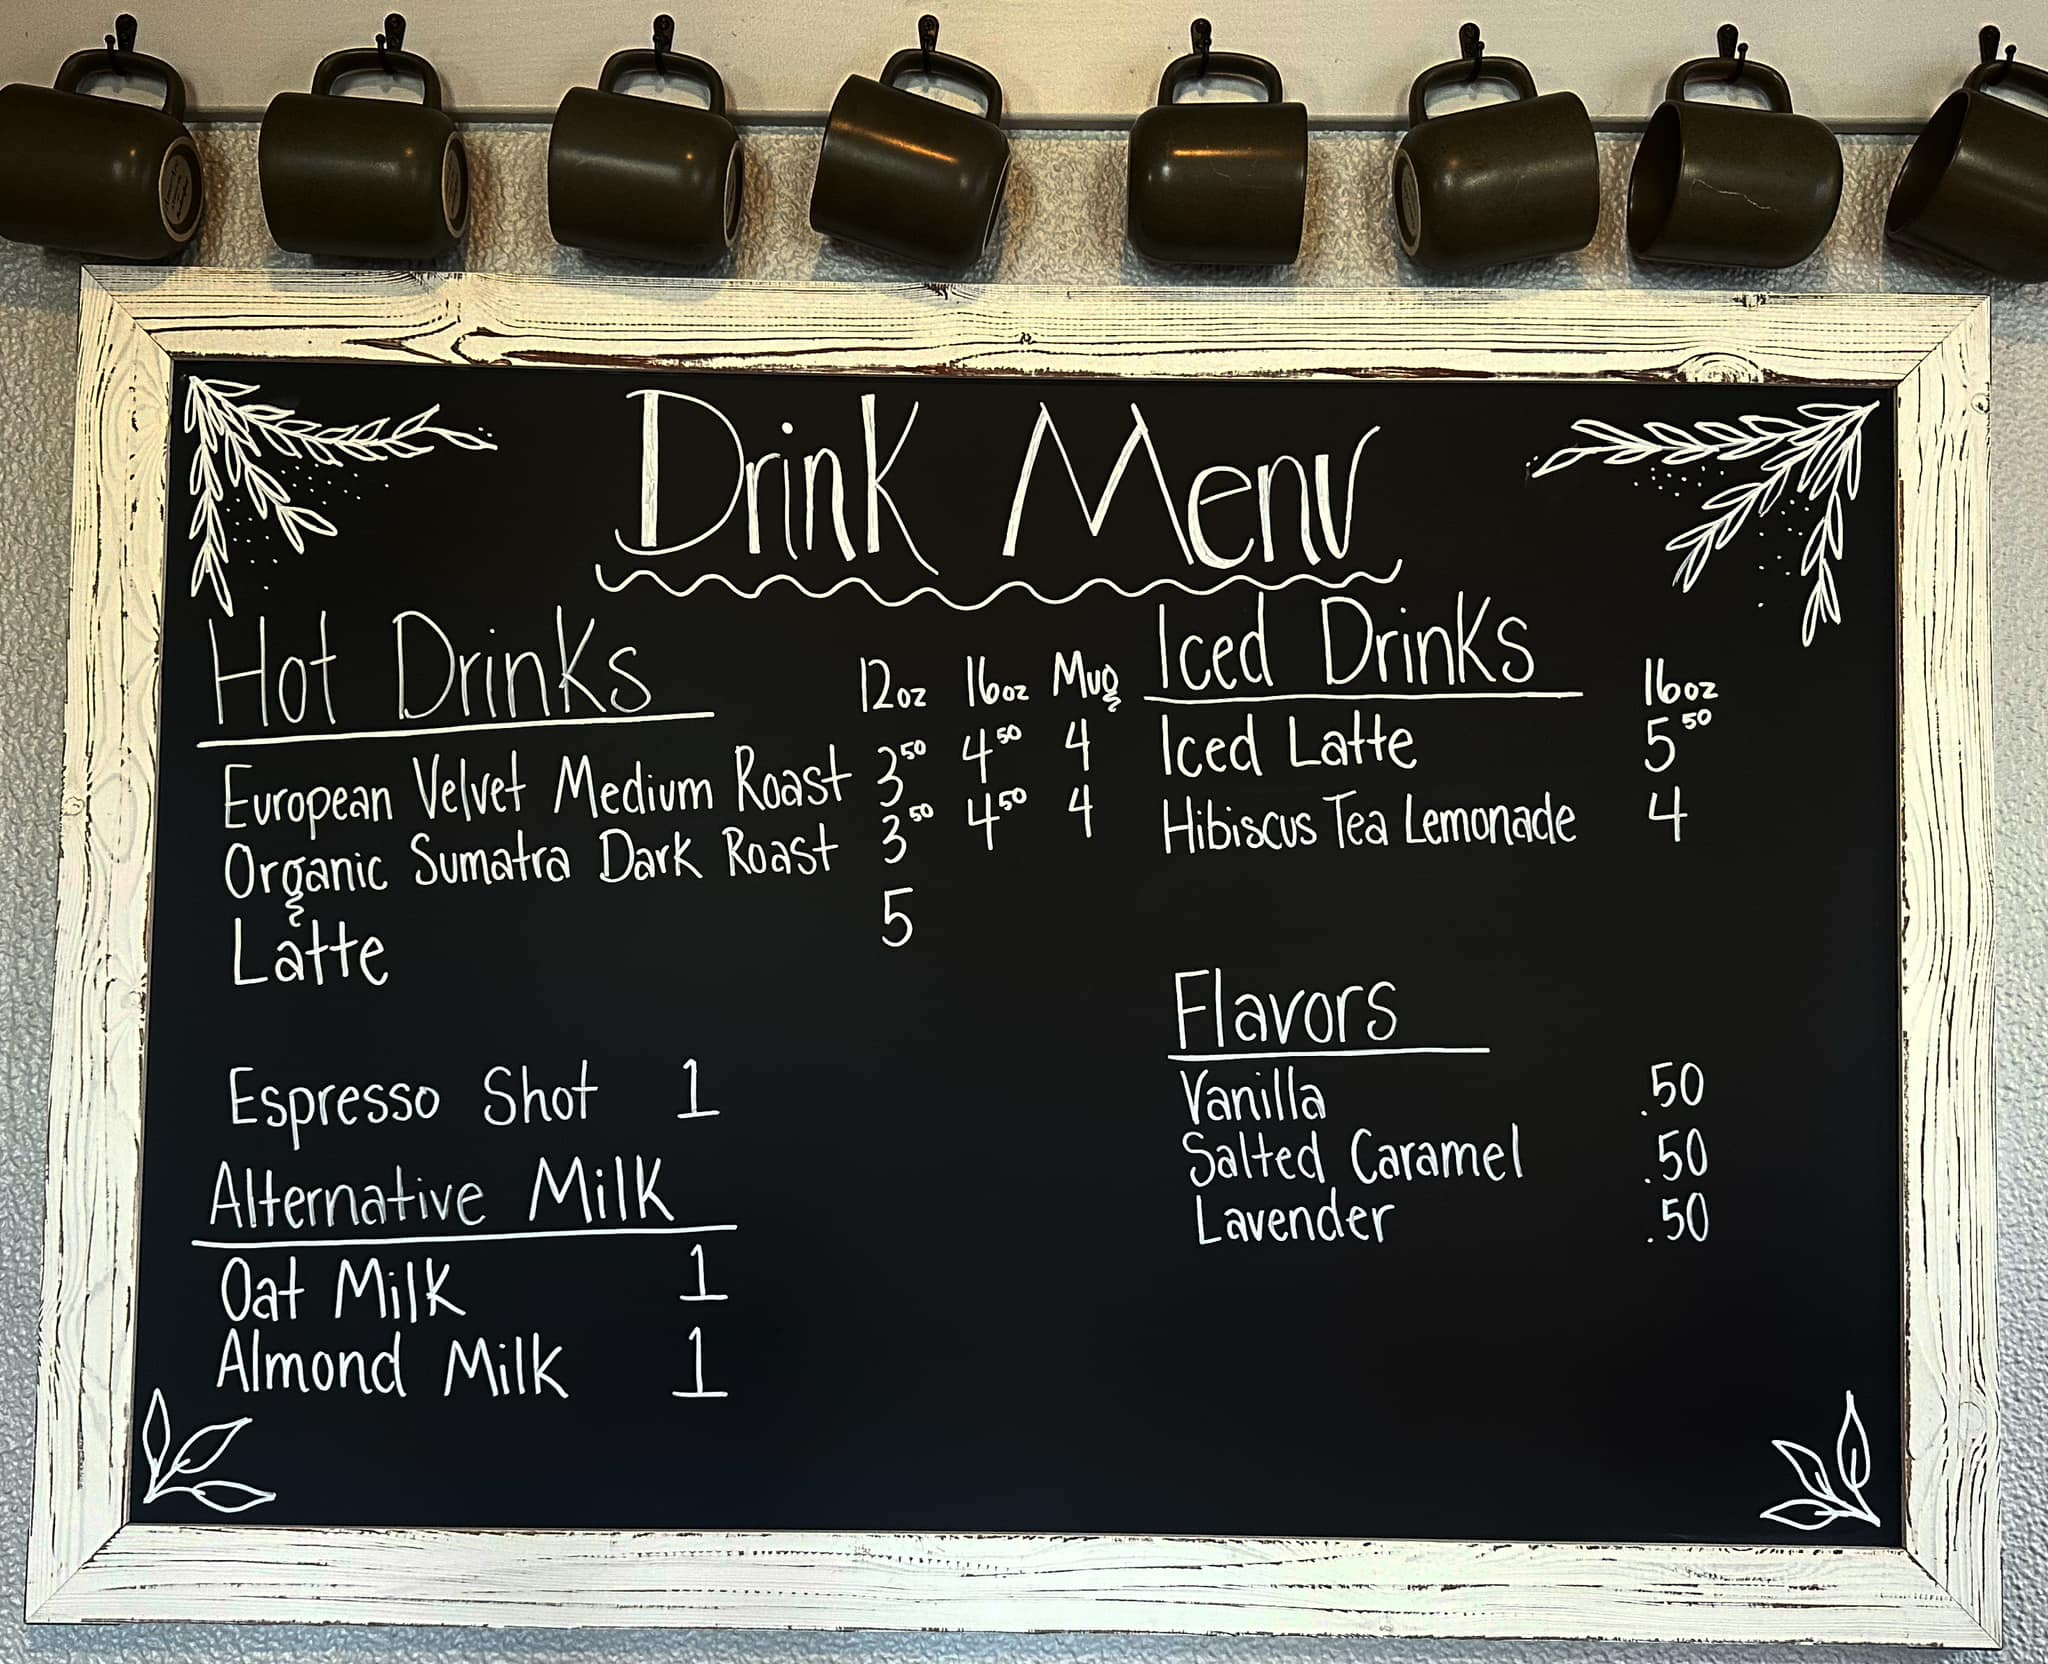 Drink Menu
Hot Drinks 12oz 16oz Mug
European Velvet Medium Roast 3⁵⁰ 4⁵⁰ 4
Organic Sumatra Dark Roast 3⁵⁰ 4⁵⁰ 4
Latte 5
Espresso Shot 1
Alternative Milk
Oat Milk 1
Almond Milk 1
Iced Drinks 16oz
Iced Latte 5⁵⁰
Hibiscus Tea Lemonade 4
Flavors
Vanilla .50
Salted Caramel .50
Lavender .50